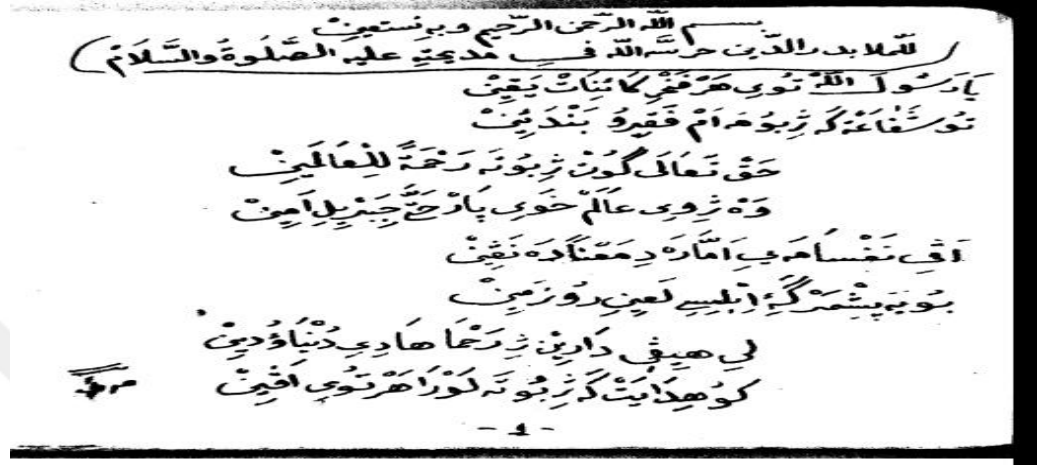 بسم الله الرّحمن الرّحيم وبه نستعين
( للملا بدر الدّين حرسه الله في مديحته عليه الصّلوة والسّلام )
يَا رَسُولَ اللّه تُوى هَرْ فَخْرِ كَائِنَاتْ يَقِينْ
تو شَفَاعَةْ كَه ژِبُو مَه اَمْ فَقِيرُو بَنْدَئِينْ
حَقْ تَعَالَى گُوتْ ژِبُوتَه رَحْمَةً لِلْعَالَمِينْ
وَه ژِوِى عَالَمْ خَوَى يَارْ حَتَّى جِبْرِيلِ اَمِينْ
اَڤِى نَفْسَا مَه يِى اَمَّارَه دِ مَعْنَا دَه نَڤِينْ
بُويَه پِشْمَرْگَهٔ اِبْلِيسِى لَعِينِ رُو زَمِينْ
لي هِيڤِى دَارِينْ ژِ رَحْمَا هَادِىِ دُنْيَاوُ دِينْ
كو هِدَايَتْ كَه ژِبُوتَه لَوْرَا هَرْ تُوى اَڤِينْ
- ١ -